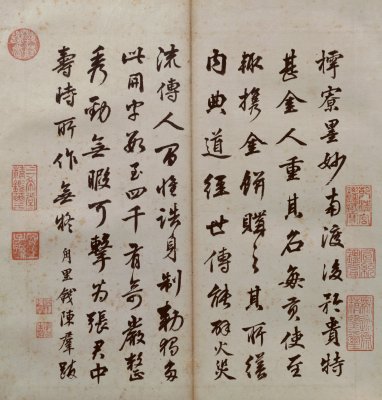 樗寮墨妙南渡後於貴特
甚金人重其名每貢使至
輒携金餅購之其所繕
内典道經世傳能辟火災
流傳人間惟誥身制勅獨多
此字數至四千有奇嚴整
秀勁無瑕可擊為張君中
壽時所作無疑 甪里錢陳羣跋